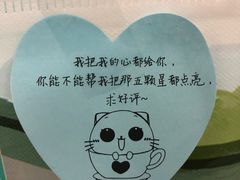 我把我的心都给你，
你能不能帮我把那五颗星都点亮，
求好评~